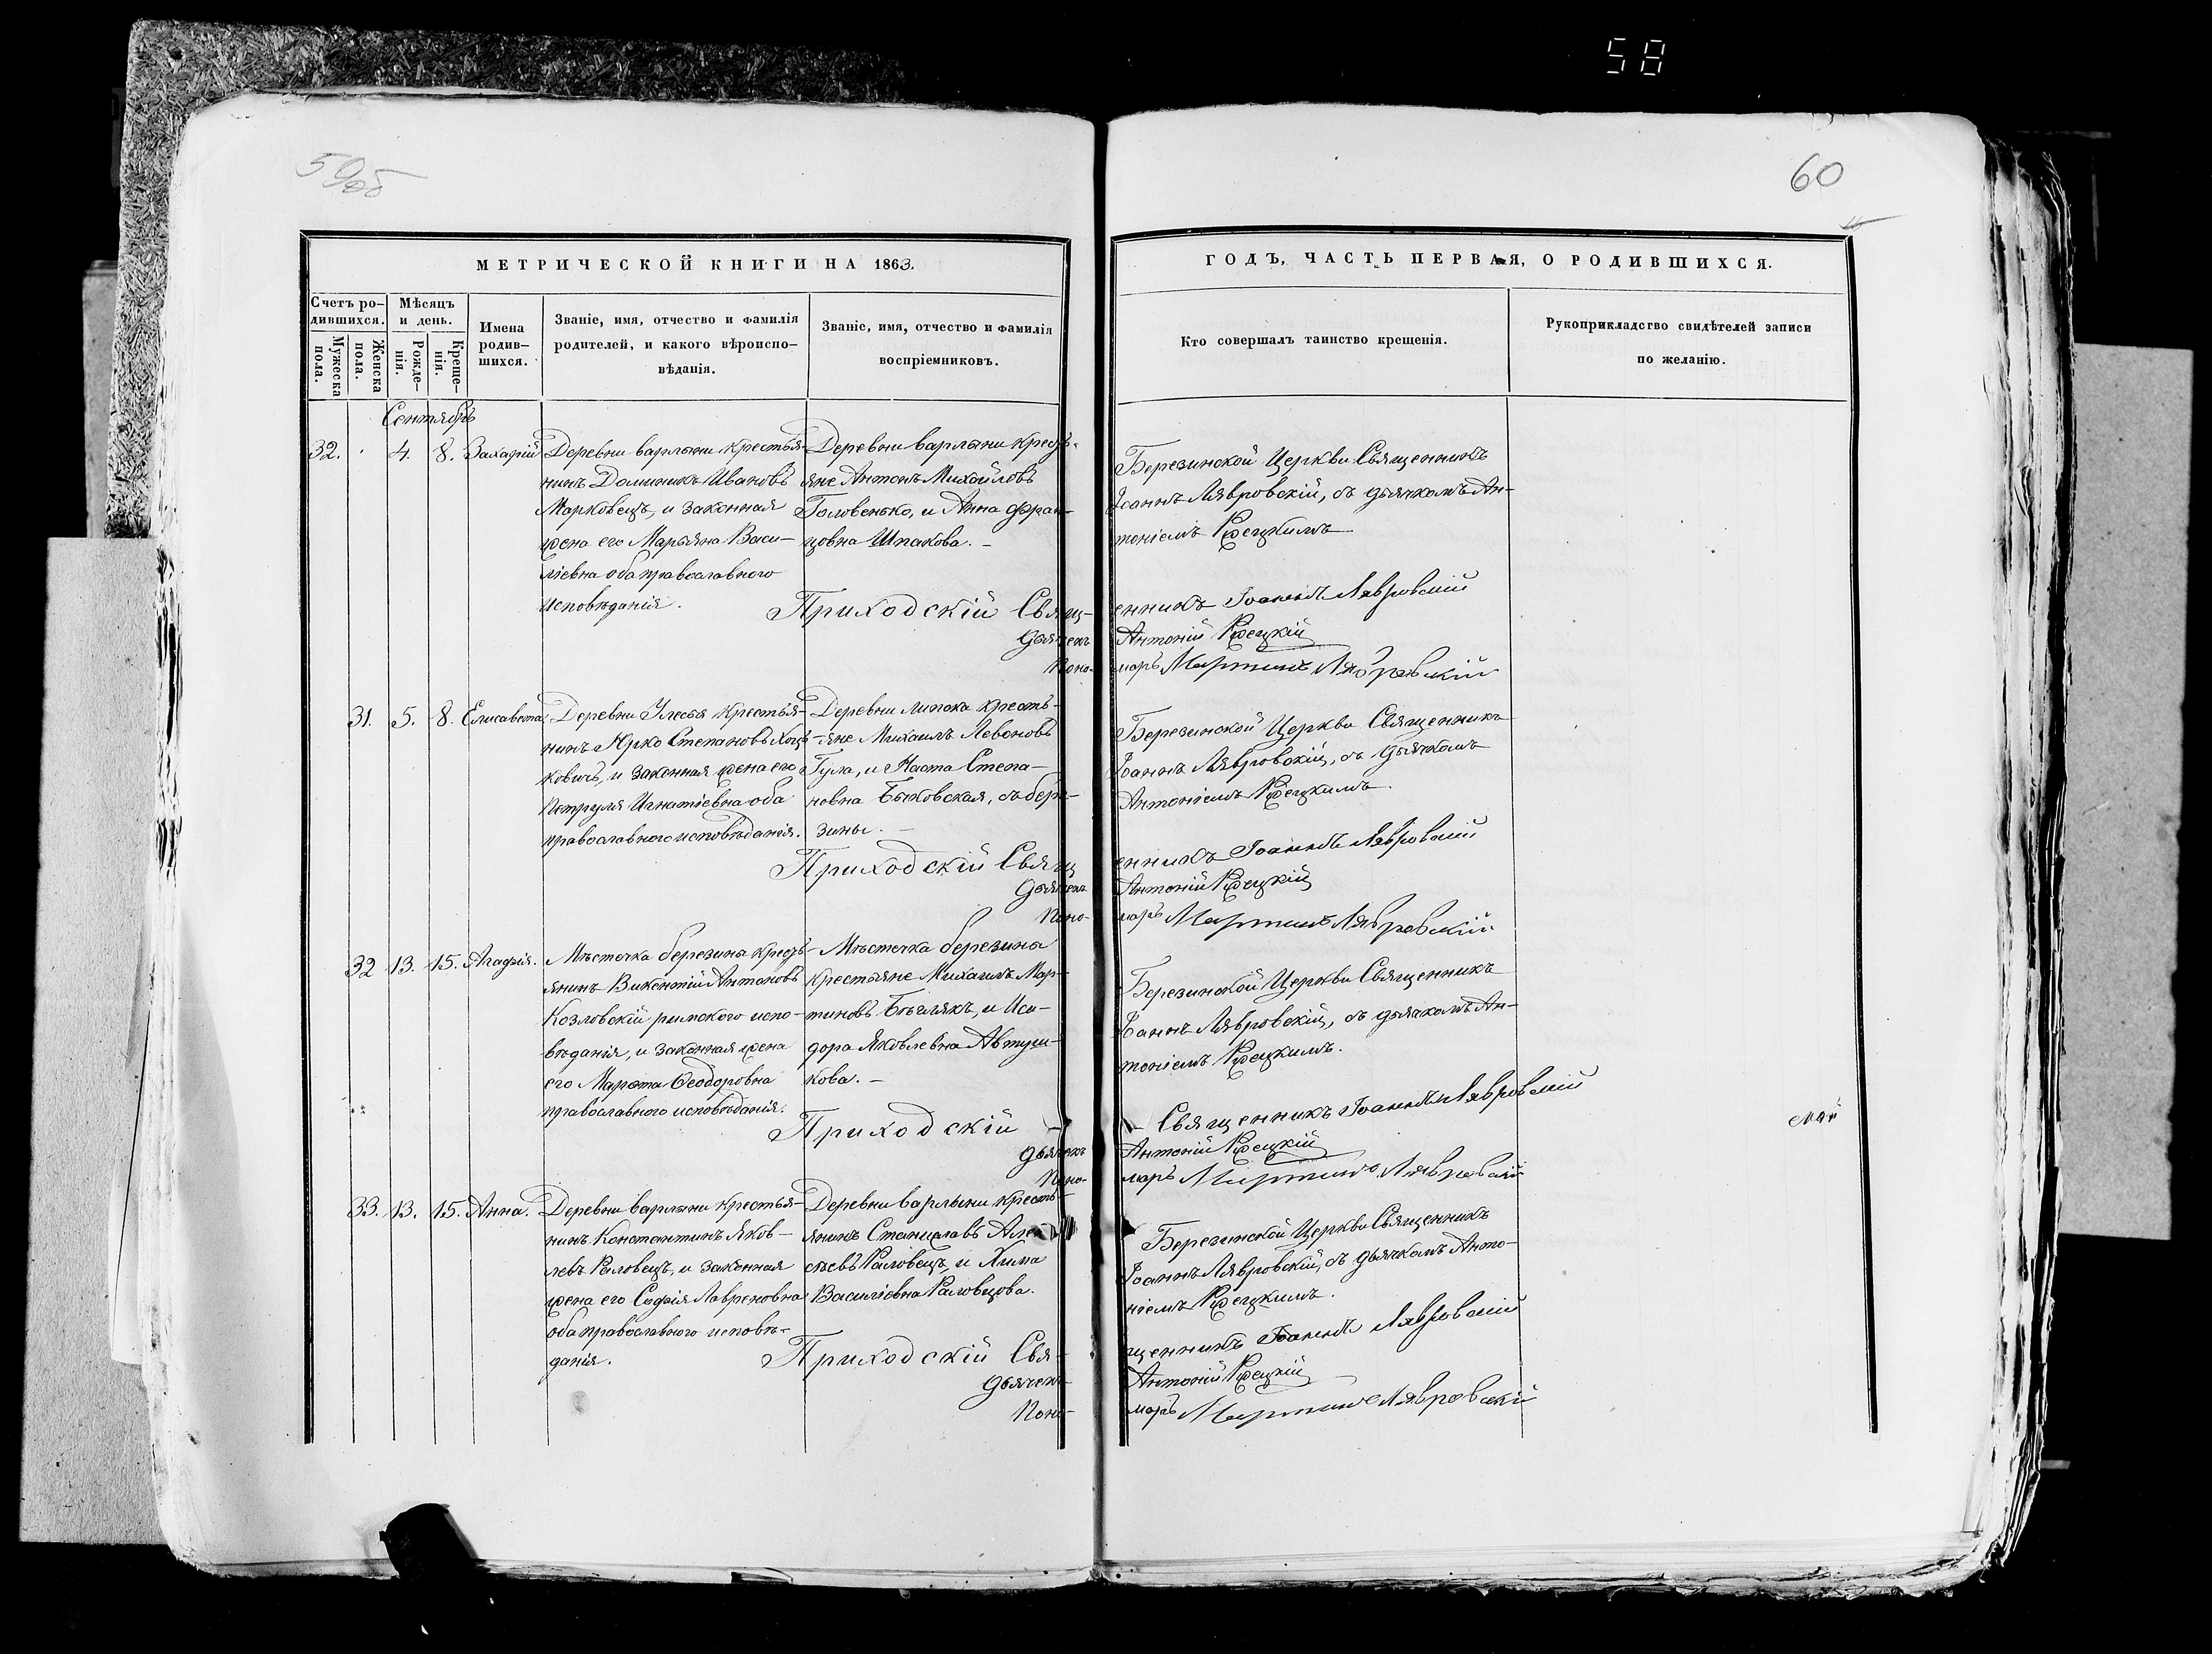 58
59об
60
МЕТРИЧЕСКОЙ КНИГИ НА 1863.
Счетъ ро-
дившихся.
Мужеска
пола.
Женска
пола.
Мѣсяцъ
и день.
Рожде-
нія.
Креще-
нія.
Имена
родив-
шихся.
Званіе, имя, отчество и фамилія
родителей, и какого вѣроиспо-
вѣданія.
Званіе, имя, отчество и фамилія
воспріемниковъ.
ГОДЪ, ЧАСТЬ ПЕРВАЯ, О РОДИВШИХСЯ.
Кто совершалъ таинство крещенія.
Рукоприкладство свидѣтелей записи
по желанію.
Сентябрь
32. 4. 8. Захарій
Деревни Варлыни крестья-
нинъ Доминикъ Ивановъ
Марковецъ, и законная
жена его Марьяна Васи-
ліевна оба православного
исповѣданія.
Деревни Варлыни кресть-
яне Антонъ Михайловъ
Головенько, и Анна Фран-
цовна Шпакова. –
Березинской Церкви Священникъ
Іоаннъ Лявровскій, съ дьячкомъ Ан-
тоніемъ
Приходскій Священникъ Іоаннъ Лявровскій
дьячекъ Антоній
Пономарь Мартинъ Лявровскій
31. 5. 8. Елисавета
Деревни Улесья крестья-
нинъ Юрко Степановъ Хоц-
ковичъ, и законная жена его
Петруля Игнатіевна оба
православного исповѣданія.
Деревни Липска кресть-
яне Михаилъ Левоновъ
Гула, и Наста Степа-
новна Быковская, съ бере-
зины. –
Березинской Церкви Священникъ
Іоаннъ Лявровскій, съ дьячкомъ
Антоніемъ
Приходскій Священникъ Іоаннъ Лявровскій
дьячекъ Антоній
Пономарь Мартинъ Лявровскій
32 13. 15. Агафія.
Мѣстечка березина кресть-
янинъ Викентій Антоновъ
Козловскій римского испо-
вѣданія, и законная жена
его Марѳта Ѳеодоровна
православного исповѣданія.
Мѣстечка березина
крестьяне Михаилъ Мар-
тиновъ Бѣглякъ, и Иси-
дора Яковлевна Автуш-
кова. –
Березинской Церкви Священникъ
Іоаннъ Лявровскій, съ дьячкомъ Ан-
тоніемъ
Приходскій – Священникъ Іоаннъ Лявровскій
дьячекъ Антоній
Пономарь Мартинъ Лявровскій
33. 13. 15. Анна.
Деревни Варлыни крестья-
нинъ Константинъ Яков-
левъ Раловецъ, и законная
жена его Софія Лавреновна
оба православного исповѣ-
данія.
Деревни Варлыни кресть-
янинъ Станиславъ Алек-
сѣевъ Раловецъ, и Хима
Василіевна Раловцова.
Березинской Церкви Священникъ
Іоаннъ Лявровскій, съ дьячкомъ Анто-
ніемъ
Приходскій Священникъ Іоаннъ Лявровскій
дьячекъ Антоній
Пономарь Мартинъ Лявровскій